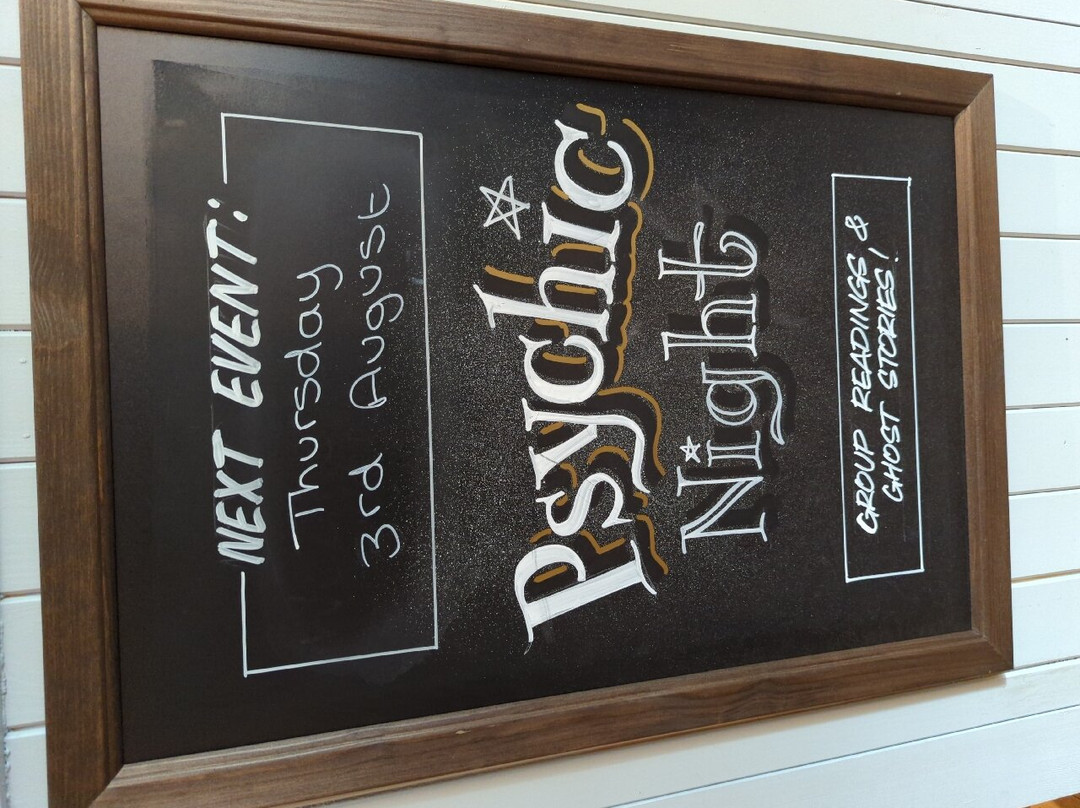 NEXT EVENT:
Thursday
3rd August
Psychic
Night
GROUP READINGS &
GHOST STORIES!